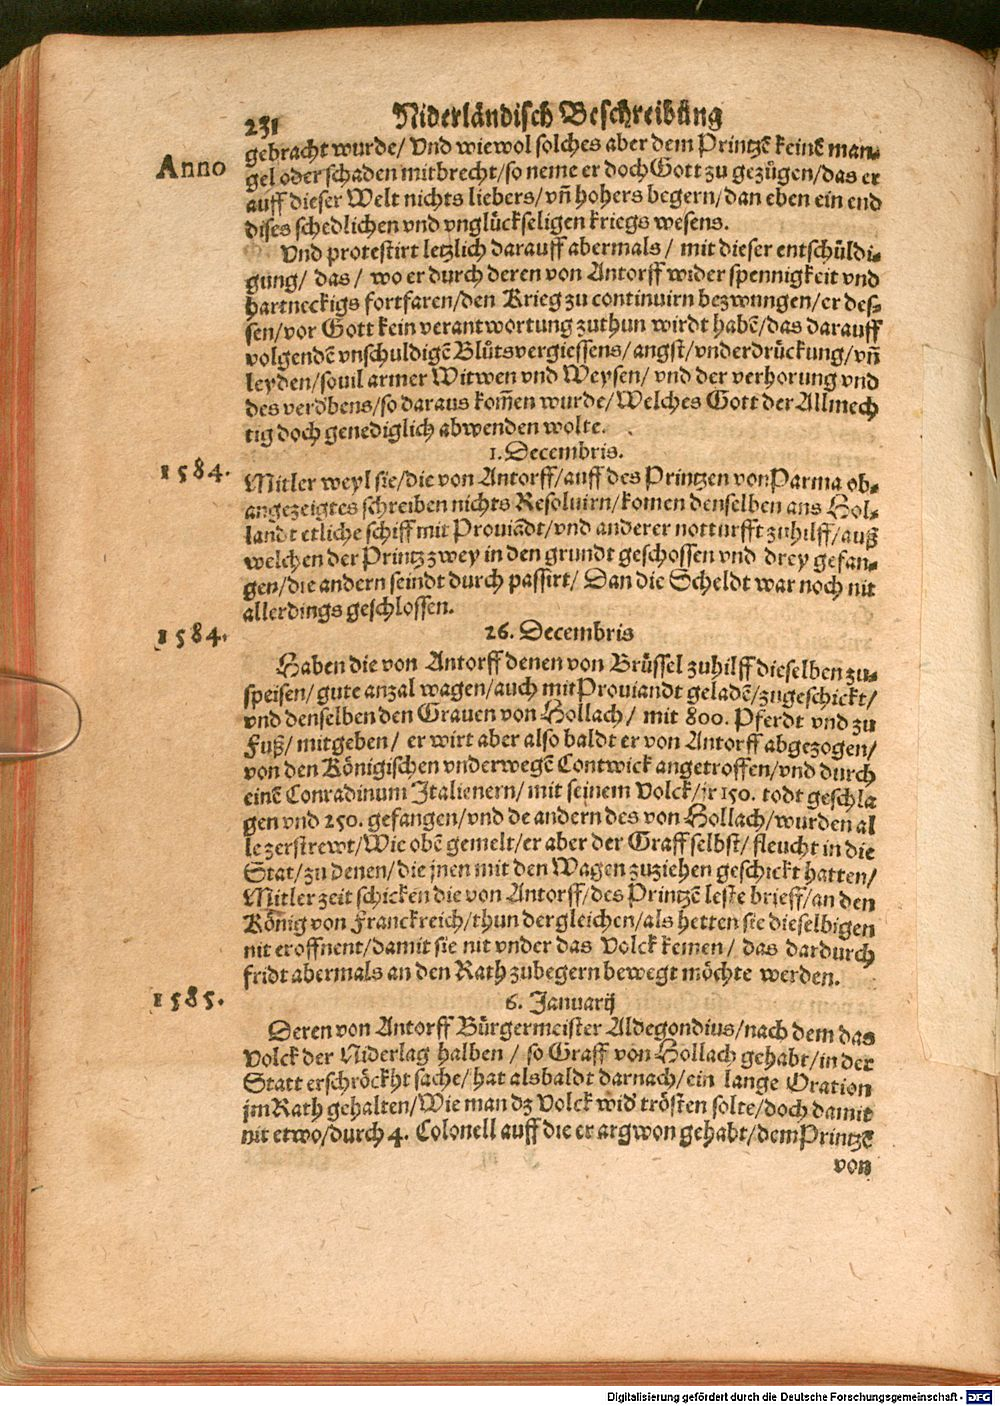 231 Niderländisch Beschreibüng
Anno
gebracht wurde/ Vnd wiewol solches aber dem Printzē keinē man-
gel oder schaden mitbrecht/so neme er doch Gott zu gezügen/das er
auff dieser Welt nichts liebers/vñ hohers begern/dan eben ein end
dises schedlichen vnd vnglückseligen kriegs wesens.
Vnd protestirt letzlich darauff abermals/ mit dieser entschüldi-
gung/ das/ wo er durch deren von Antorff widerspennigkeit vnd
hartneckigs fortfaren/den Krieg zu continuirn bezwungen/er des-
sen/vor Gott kein verantwortung zuthun wirdt habē/das darauff
volgendē vnschuldigē Blůtsvergiessens/angst/vnderdrückung/vñ
leyden/souil armer Witwen vnd Weysen/ vnd der verhorung vnd
des verdbens/so daraus kom̄en wurde/Welches Gott der Allmech
tig doch genediglich abwenden wolte.
1. Decembris.
1584.
Mitler weyl sie/die von Antorff/auff des Printzen von Parma ob-
angezeigtes schreiben nichts Resoluirn/komen denselben aus Hol-
landt etliche schiff mit Prouiādt/vnd anderer notturfft zuhilff/auß
welchen der Printz zwey in den grundt geschossen vnd drey gefan-
gen/die andern seindt durch passirt/ Dan die Scheldt war noch nit
allerdings geschlossen.
26. Decembris
1584.
Haben die von Antorff denen von Brüssel zuhilff dieselben zu-
speisen/gute anzal wagen/auch mit Prouiandt geladē/zugeschickt/
vnd denselben den Grauen von Hollach/ mit 800. Pferdt vnd zu
Fuß/ mitgeben/ er wirt aber also baldt er von Antorff abgezogen/
von den Königischen vnderwegē Contwick angetroffen/vnd durch
einē Conradinum Italienern/ mit seinem Volck/jr 150. todt geschla
gen vnd 250. gefangen/vnd de andern des von Hollach/wurden al
le zerstrewt/Wie obē gemelt/er aber der Graff selbst/fleucht in die
Stat/zu denen/die jnen mit den Wagen zuziehen geschickt hatten/
Mitler zeit schicken die von Antorff/des Printzē leste brieff/an den
König von Franckreich/thun dergleichen/als hetten sie dieselbigen
nit eroffnent/damit sie nit vnder das Volck kemen/ das dardurch
fridt abermals an den Rath zubegern bewegt möchte werden.
1585.
6. Januarij
Deren von Antorff Bürgermeister Aldegondius/nach dem das
Volck der Niderlag halben/ so Graff von Hollach gehabt/in der
Statt erschröckht sache/hat alsbaldt darnach/ein lange Oration
jm Rath gehalten/Wie man dz Volck wid' trösten solte/doch damit
nit etwo/durch 4. Colonell auff die er argwon gehabt/dem Printzē
von
Digitalisierung gefördert durch die Deutsche Forschungsgemeinschaft - DFG